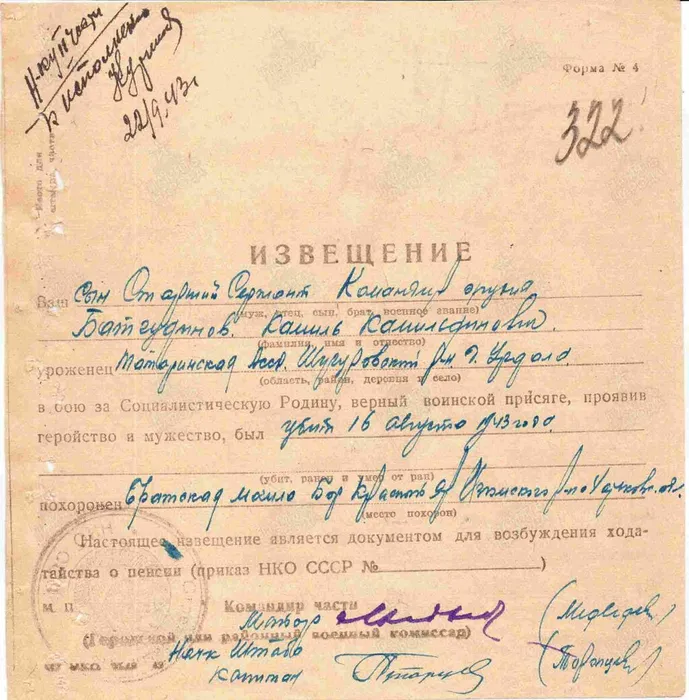 Н-ку IV части
к исполнению
22/9.43г
Форма № 4
322
ИЗВЕЩЕНИЕ
Ваш сын Старший Сержант Командир орудия
(муж, отец, сын, брат, военное звание)
Батгудинов Камиль
(фамилия, имя и отчество)
уроженец Татаринская Асср. Шугуровский рн. д. Урдала
(область, район, деревня и село)
в бою за Социалистическую Родину, верный воинской присяге, проявив
геройство и мужество, был убит 16 августа 1943 года
(убит, ранен и умер от ран)
похоронен Братская могила
(место похорон)
Настоящее извещение является документом для возбуждения хода-
тайства о пенсии (приказ НКО СССР № )
М П Командир части
Майор (Медведев)
(Городской или районный военный комиссар)
Нач Штаба
Капитан